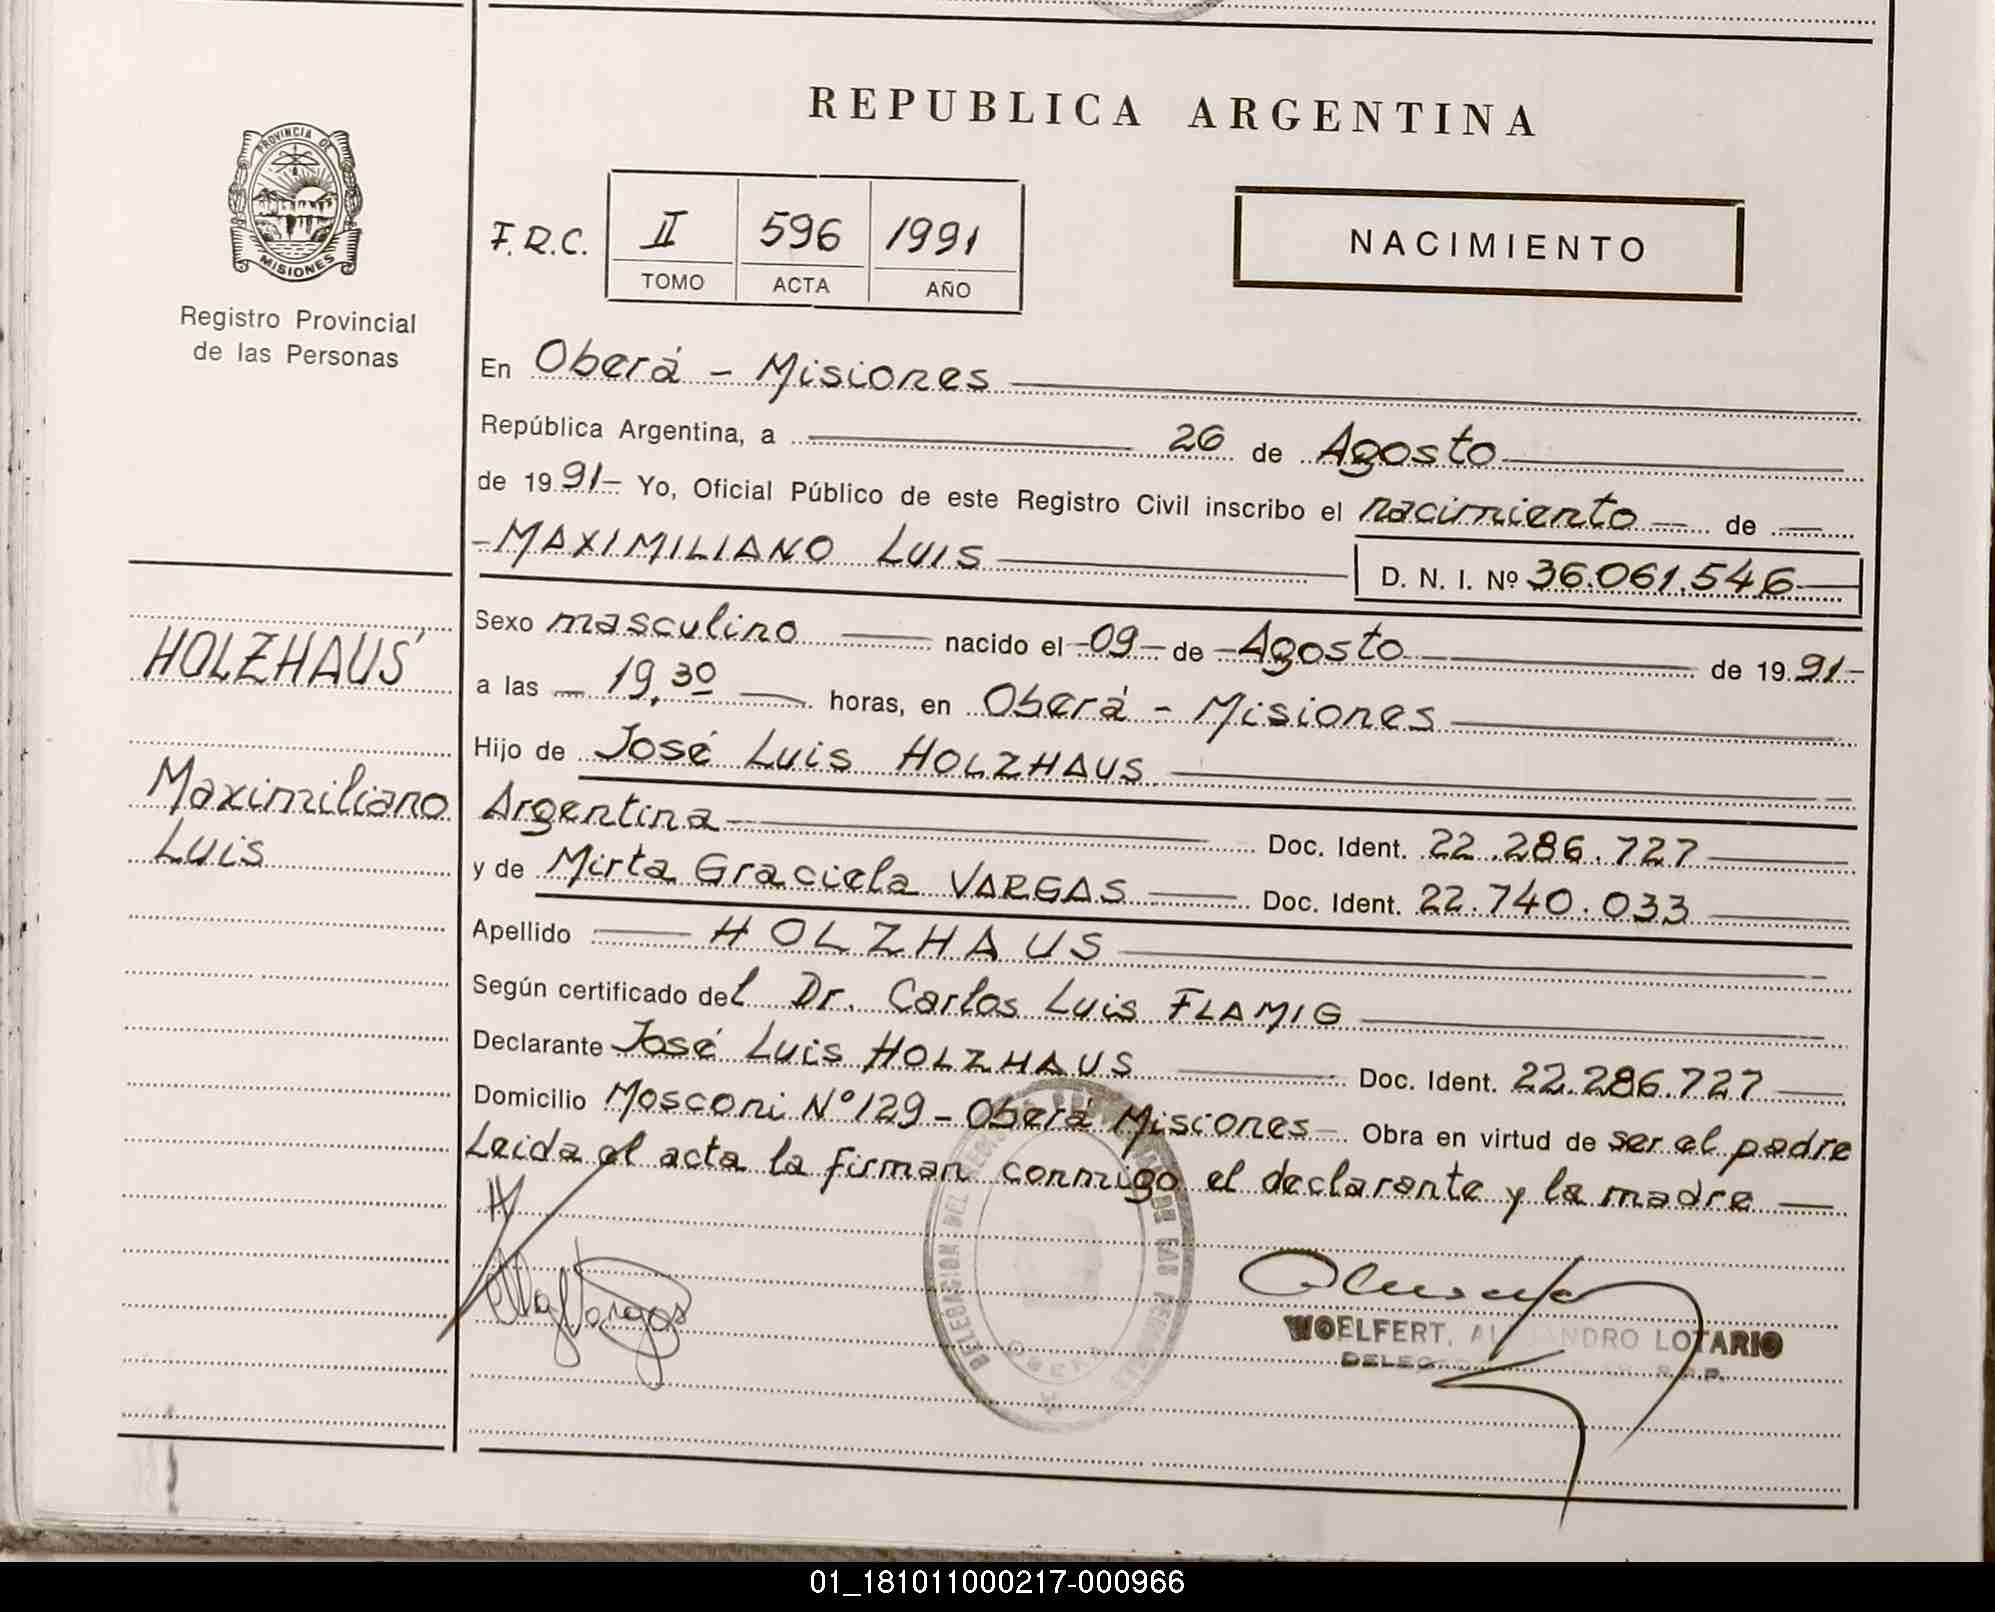 REPUBLICA ARGENTINA
PROVINCIA DE
MISIONES
Registro Provincial
de las Personas
F.R.C. II 596 1991
TOMO ACTA AÑO
NACIMIENTO
En Oberá - Misiones
República Argentina, a 26 de Agosto
de 1991- Yo, Oficial Público de este Registro Civil inscribo el nacimiento de
- MAXIMILIANO LUIS D. N. I. Nº 36.061.546
HOLZHAUS
Maximiliano
Luis
Sexo masculino nacido el 09 de Agosto de 1991-
a las 19,30 horas, en Oberá - Misiones
Hijo de José Luis HOLZHAUS
Argentina Doc. Ident. 22.286.727
y de Mirta Graciela VARGAS Doc. Ident. 22.740.033
Apellido HOLZHAUS
Según certificado del Dr. Carlos Luis FLAMIG
Declarante José Luis HOLZHAUS Doc. Ident. 22.286.727
Domicilio Mosconi Nº 129 - Oberá Misiones Obra en virtud de ser el padre
Leida el acta la firman conmigo el declarante y la madre
Vargas
DELEGACION DEL
DE LAS
WOELFERT, LOTARIO
01_181011000217-000966